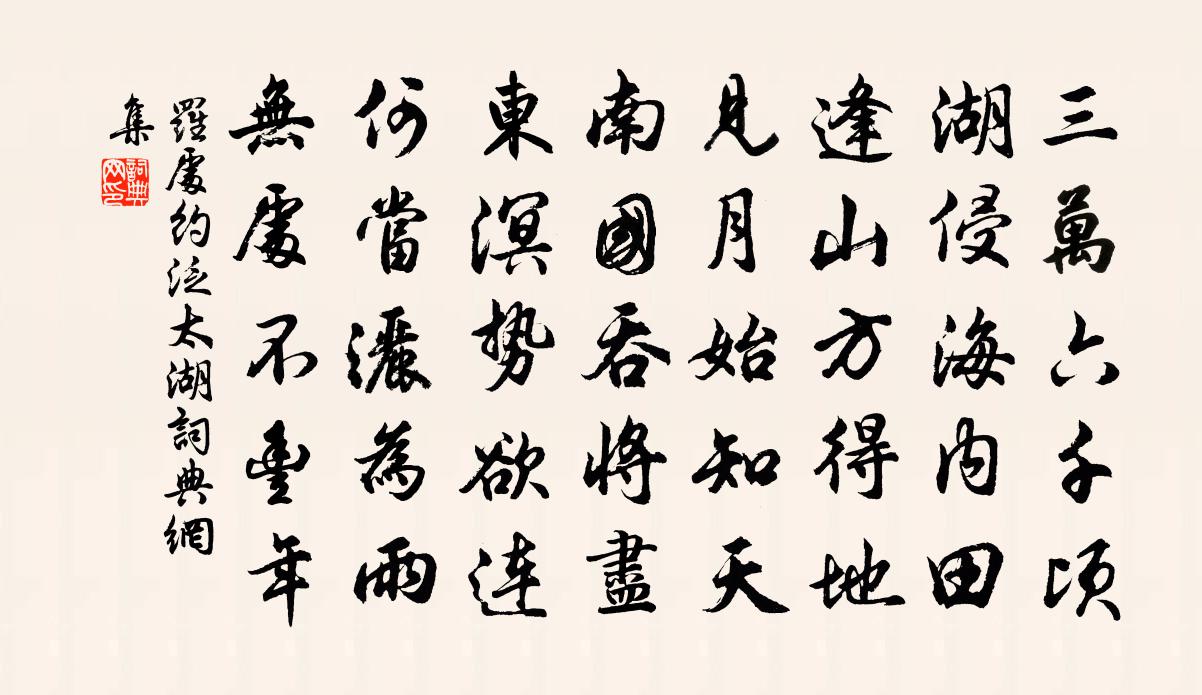 三萬六千頃
湖侵海内田
逢山方得地
見月始知天
南國吞將盡
東溟勢欲連
何當灑為雨
無處不豐年
羅處約泛太湖詞典網
集
詞典
網印